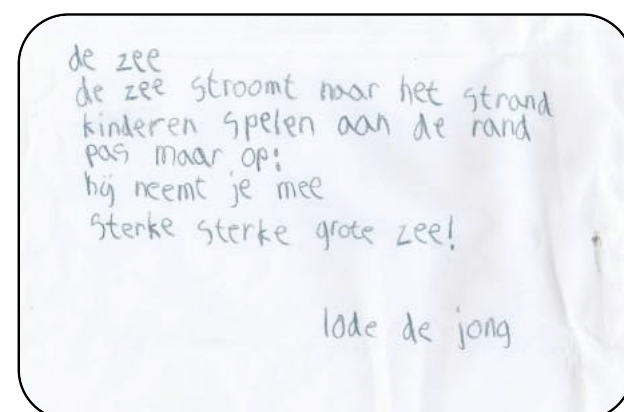 de zee
de zee stroomt naar het strand
kinderen spelen aan de rand
pas maar op:
hij neemt je mee
sterke sterke grote zee!
lode de jong